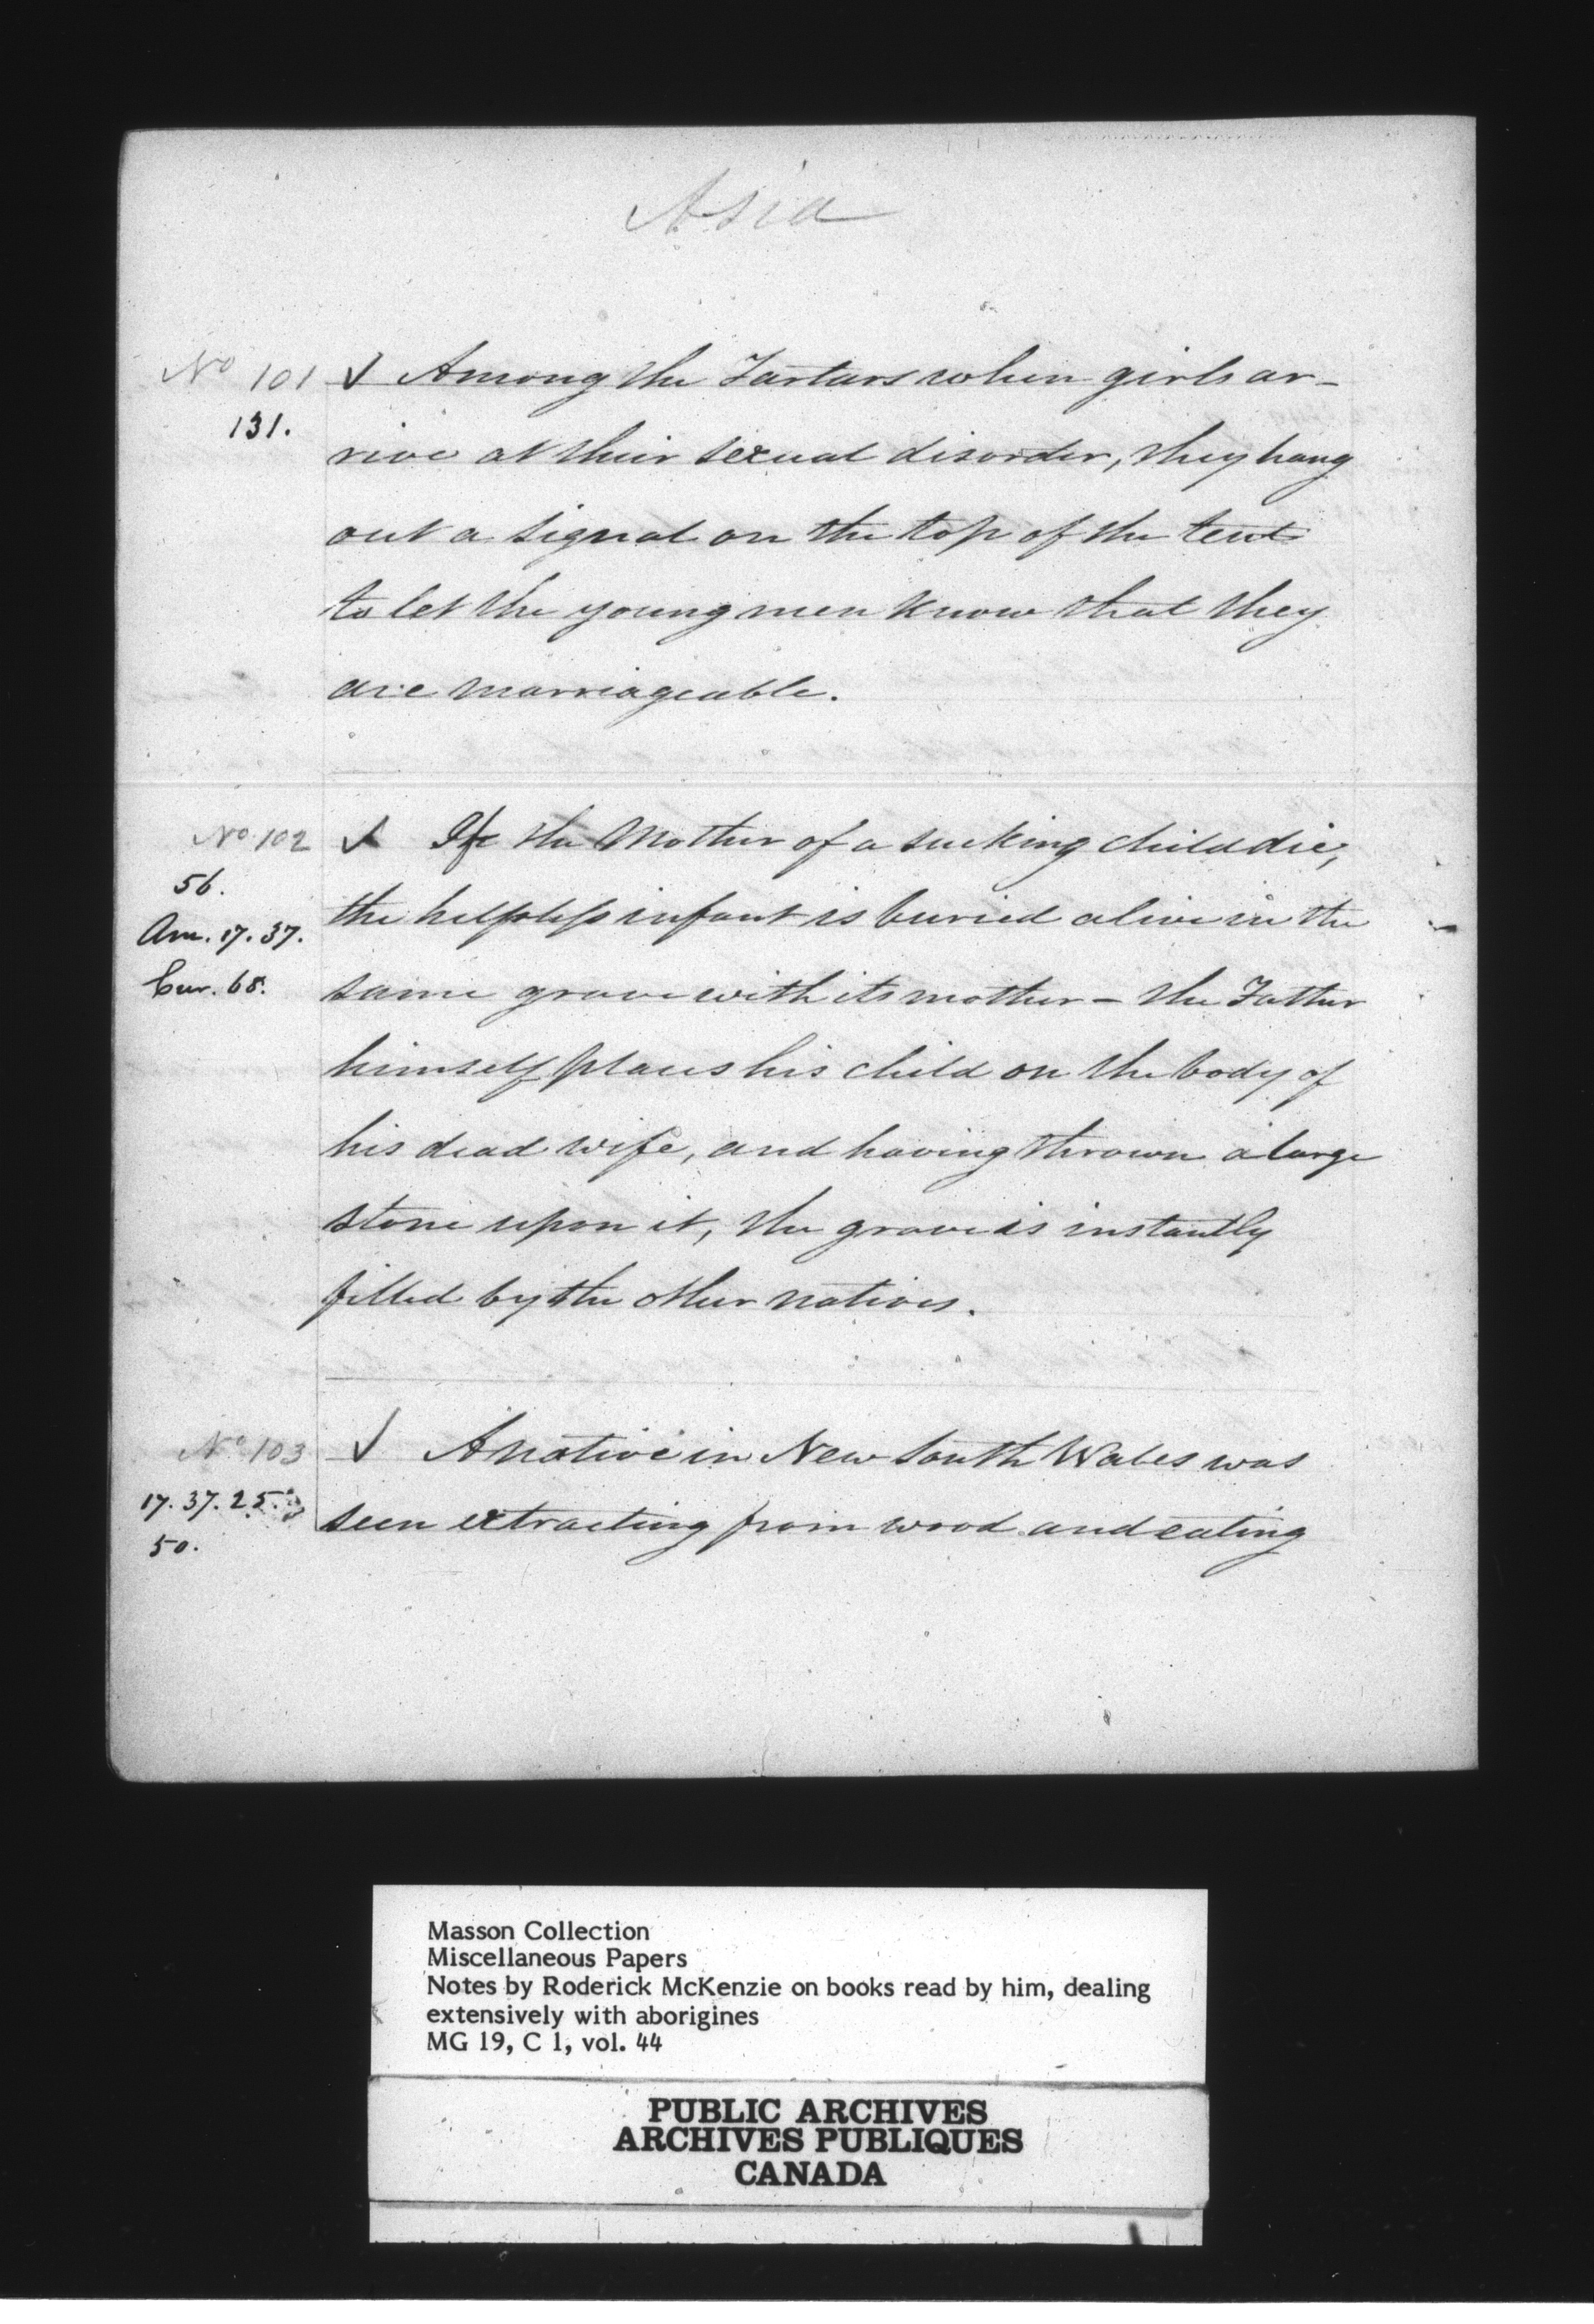 Asia
No 101 ✓ Among the Tartars when girls ar-
131.
rive at their sexual disorder, they hang
out a signal on the top of the tent
to let the young men know that they
are marriageable.
No 102 ✓ If the Mother of a sucking child die,
56.
the helpless infant is buried alive in the
Am. 17. 37.
same grave with its mother – the Father
Eur. 68.
himself places his child on the body of
his dead wife, and having thrown a large
stone upon it, the grave is instantly
filled by the other natives.
No 103 ✓ A native in New South Wales was
17. 37. 25.
seen extracting from wood and eating
50.
Masson Collection
Miscellaneous Papers
Notes by Roderick McKenzie on books read by him, dealing
extensively with aborigines
MG 19, C 1, vol. 44
PUBLIC ARCHIVES
ARCHIVES PUBLIQUES
CANADA